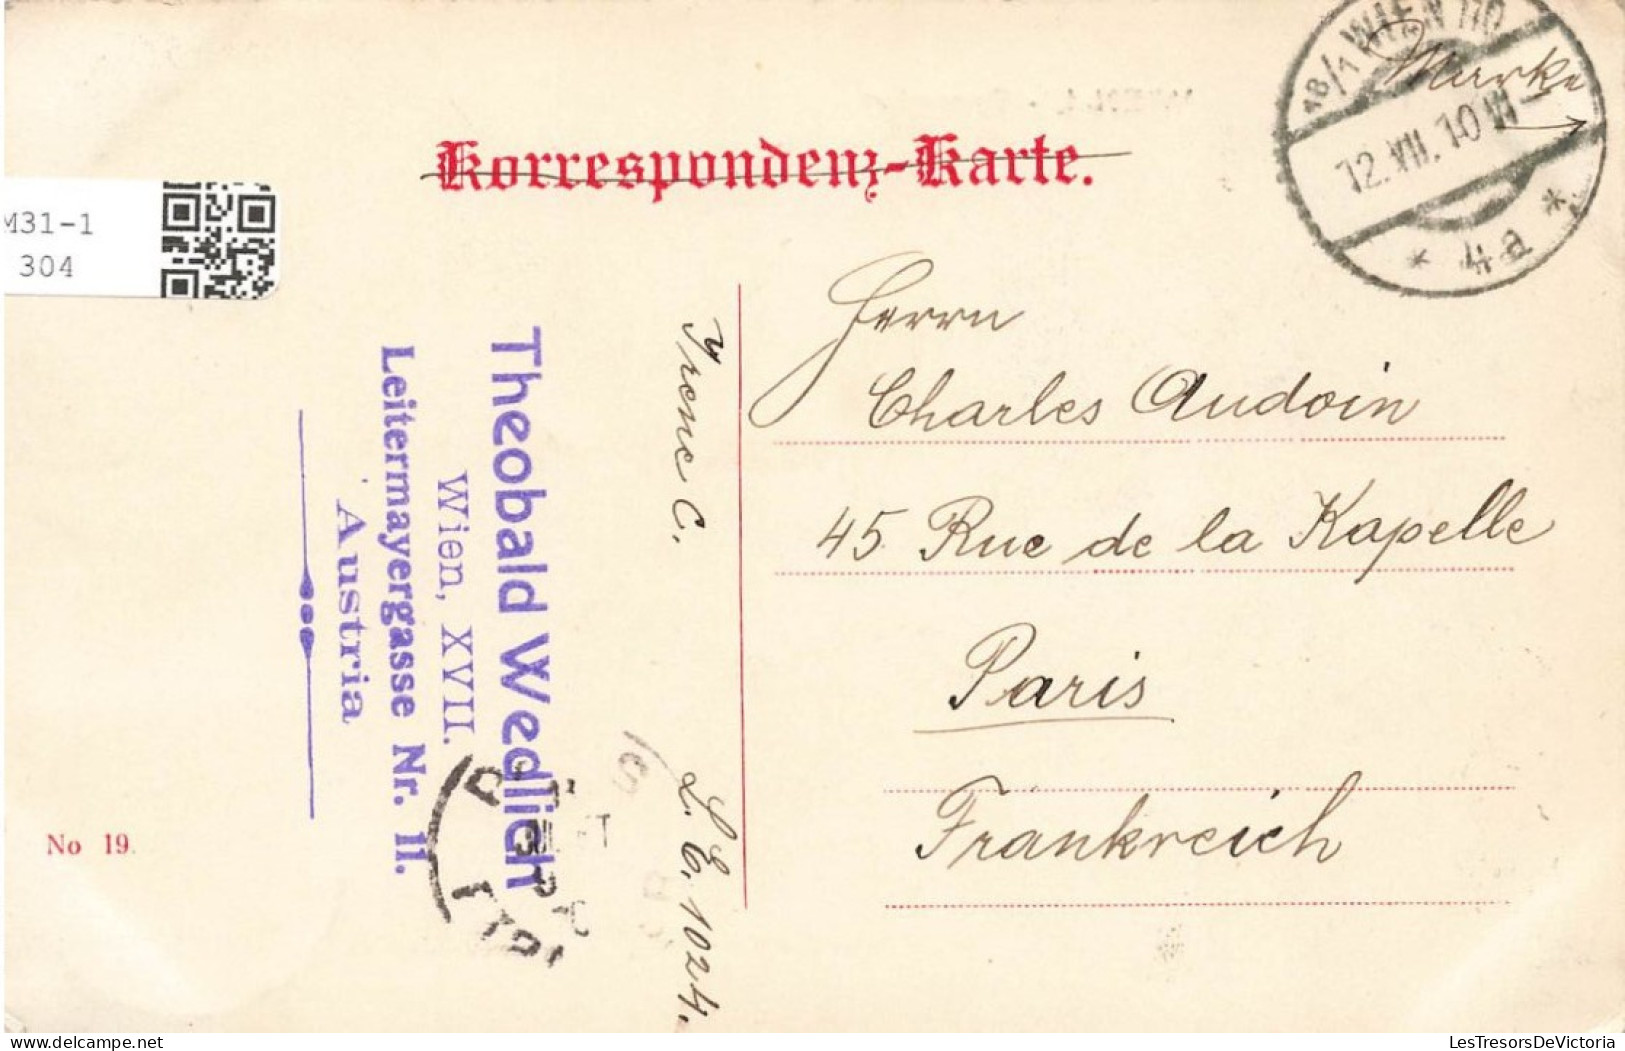 18/1 WIEN 110
Marke
12.VII.10 VI-
* 4a *
Korrespondenz-Karte.
M31-1
304
Herrn
Charles Audoin
45. Rue de la Kapelle
Paris
Frankreich
Yrene C.
L. E. 1024.
Theobald Wedlich
Wien, XVII.
Leitermayergasse Nr. 11.
Austria
No 19.
delcampe.net
LesTresorsDeVictoria